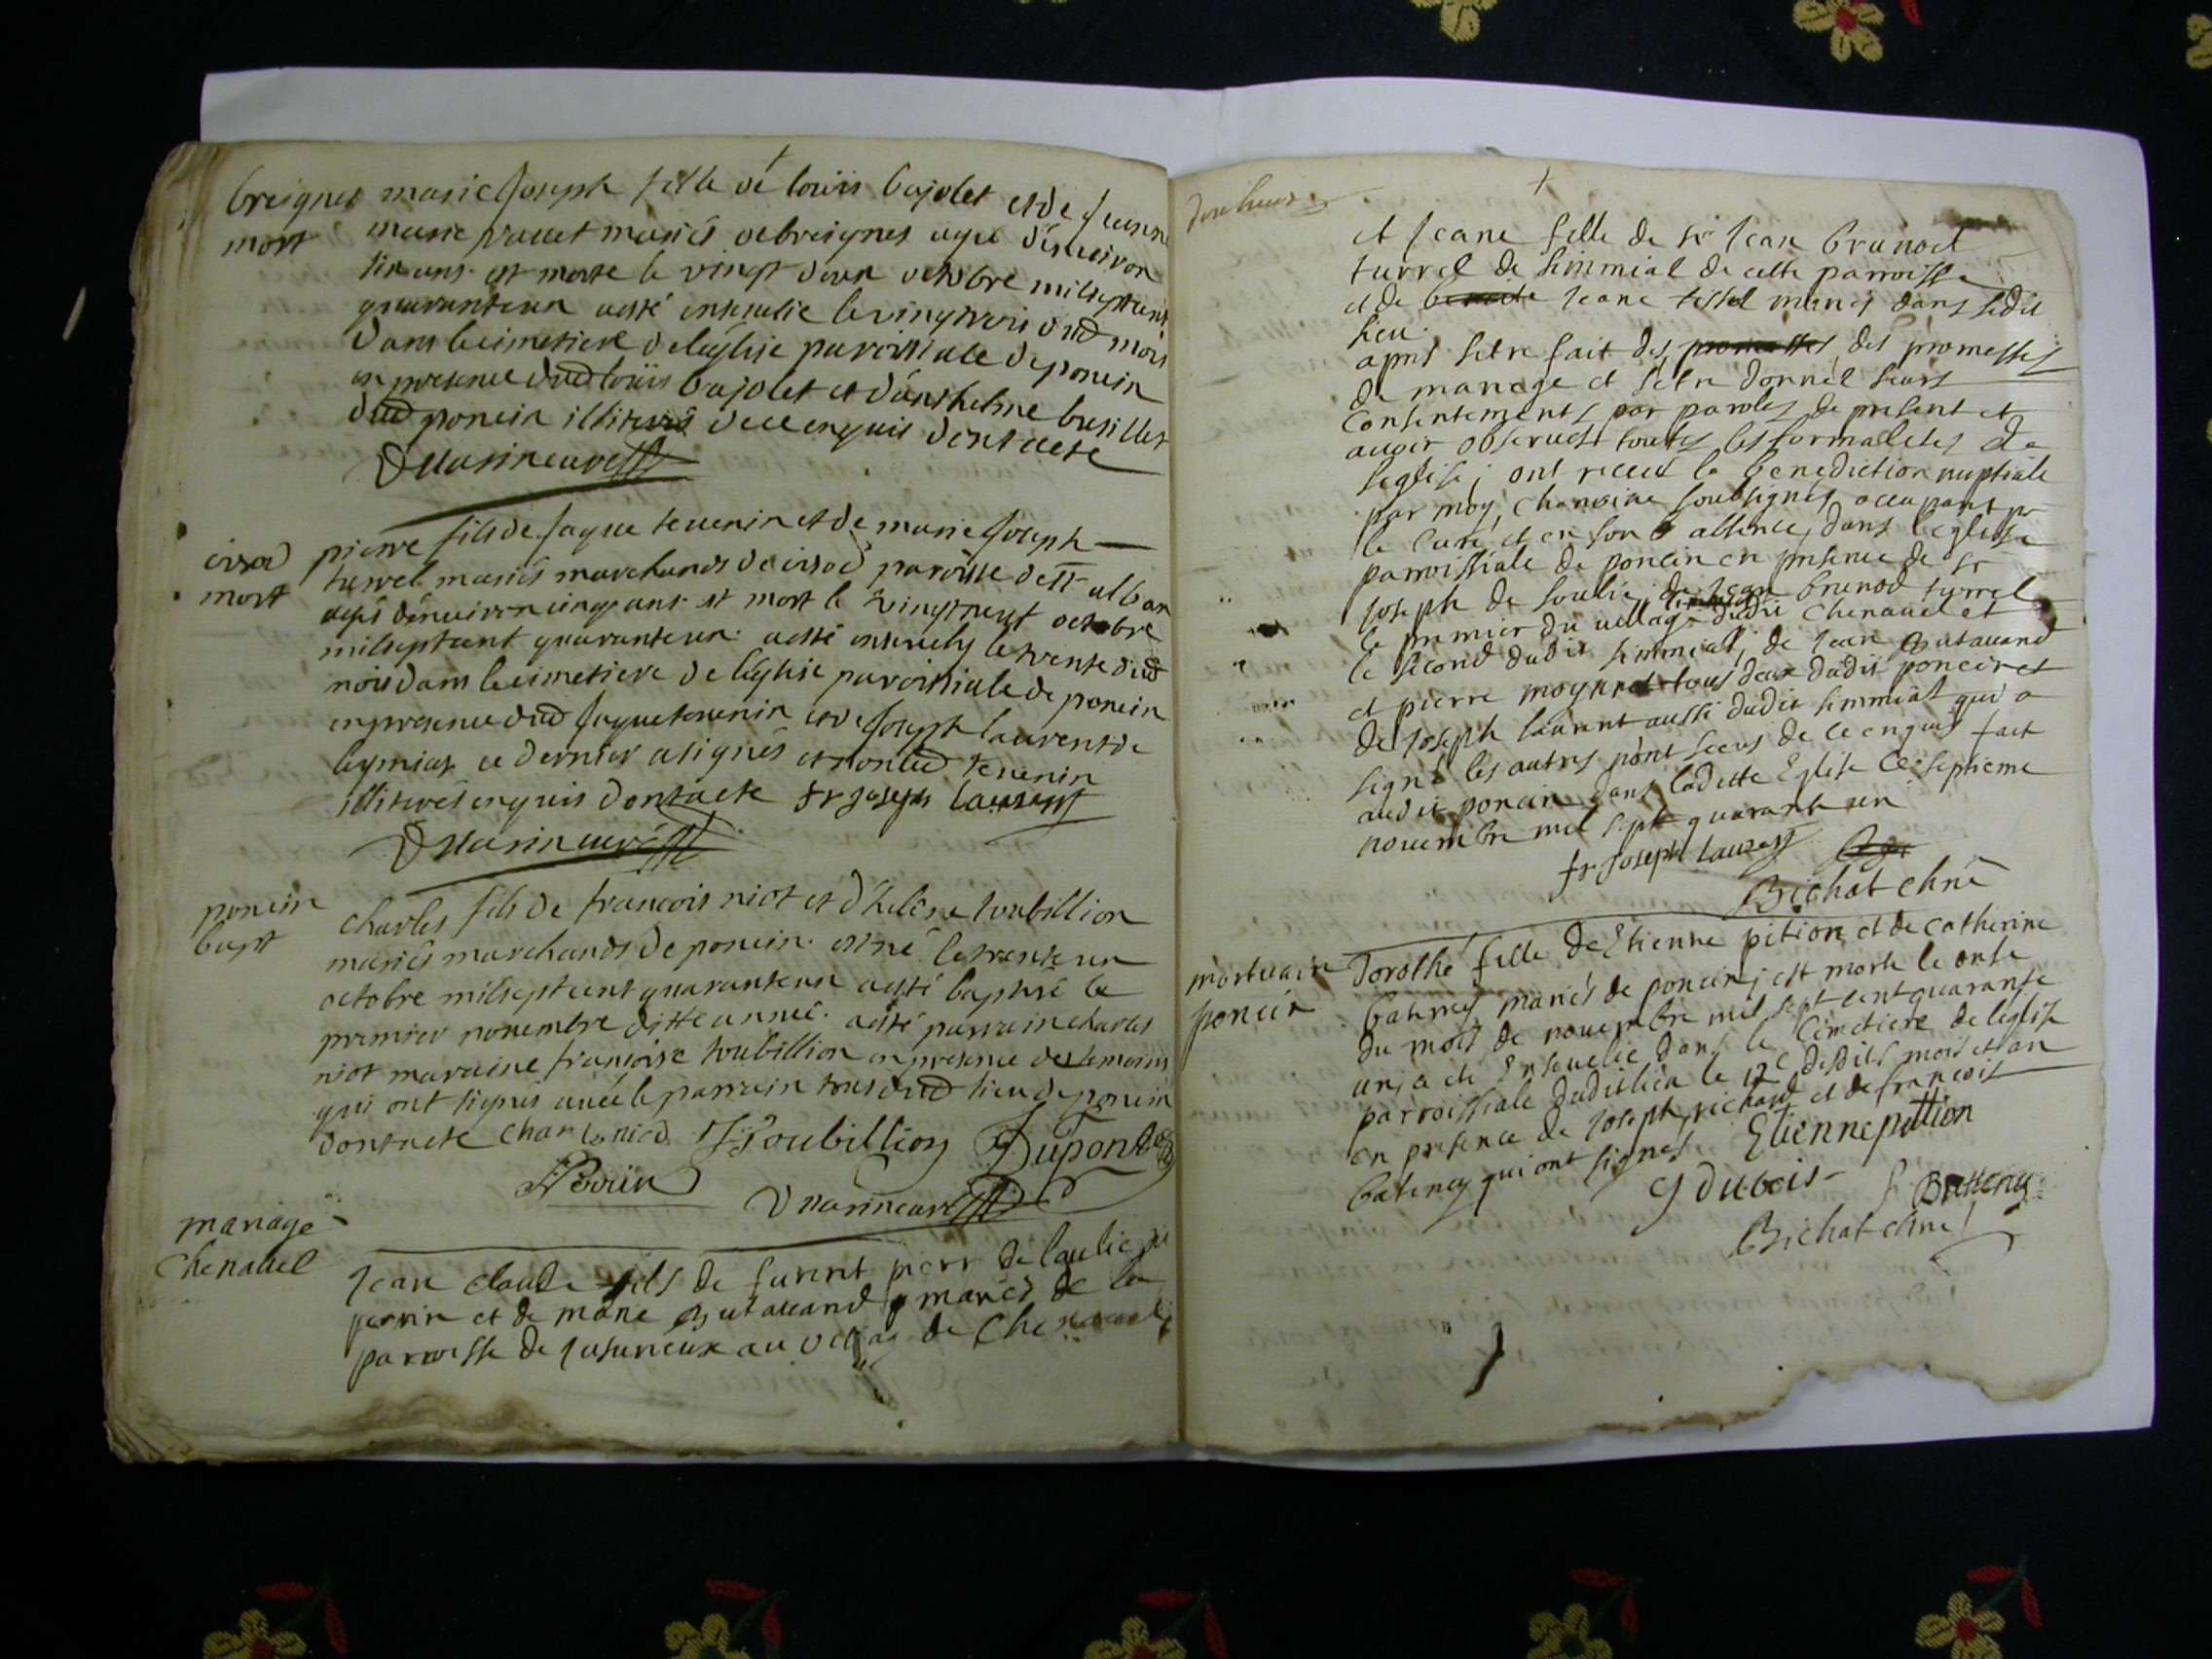 breignes
mort
marie Joseph fille de louis bajolet et de Jeanne
marie vauet mariés de breignes agée d'environ
six ans est morte le vingt deux octobre milseptcent
quaranteun a esté ensevelie le vingttrois dud mois
dans le cimetiere de l'église paroissiale de poncin
en presence dud louis bajolet et d'anthelme busillet
dud poncin illiterés de ce enquis dont acte
mort
pierre fils de Jaque tevenin et de marie Joseph
turrel mariés marchands de paroisse de st alban
agés d'environ cinq ans est mort le vingtneuf octobre
milseptcent quaranteun a esté ensevely le trente dud
mois dans le cimetiere de l'église paroissiale de poncin
en presence dud Jaque tevenin et de Joseph laurent de
ce dernier a signés et non led tevenin
illiterés enquis dont acte Joseph laurent
poncin
bapt
charles fils de francois niot et d'helene toubillion
mariés marchands de poncin est né le trente un
octobre milseptcent quaranteun a esté baptisé le
premier novembre ditte année a esté parrain charles
niot maraine francoise toubillion en presence des temoins
qui ont signés avec le parrain tous dud lieu de poncin
dont acte Toubillion Dupont
mariage
Chenavel
Jean claude fils de pierr de
perrin et de marie Gutavand mariés de la
parroisse de Jusurieux au village de Chenavel
et Jeane fille de sr Jean brunod
turrel de simmial de cette parroisse
et de Jeane tissot mariés dans ledit
lieu
apres setre fait des promesses des promesses
de mariage et setre donnél leurs
Consentements par paroles de present et
avoir observest toutes les formalites de
leglise, ont receu la benediction nuptiale
par moy Chanoine soubsignés occupant pr
le Curé et en son absence, dans leglise
parroissiale de poncin en presence de sr
Joseph de de Jean brunod turrel
le premier du village dudit Chenavel et
le second dudit simmial, de Jean Gutavand
et pierre moynret tous deux dudit poncin et
de Joseph laurent aussi dudit simmial qui a
signé les autres pont sceus de ce enquis fait
audit poncin dans ladette Eglise Ce septieme
novembre mil sept quarant un
Joseph laurent
Bichat chne
mortuaire
poncin
Dorothé fille de Etienne pition et de catherine
bateney mariés de poncin, est morte le onse
du mois de novembre mil sept cent quarante
un, a ete Ensevelie dans le Cimetiere de leglise
parroissiale dudit lieu le 12e desdits mois et an
en presence de Joseph richard et de francois
bateney qui ont signes Etienne pittion
J dubois Batteney
Bichat chne